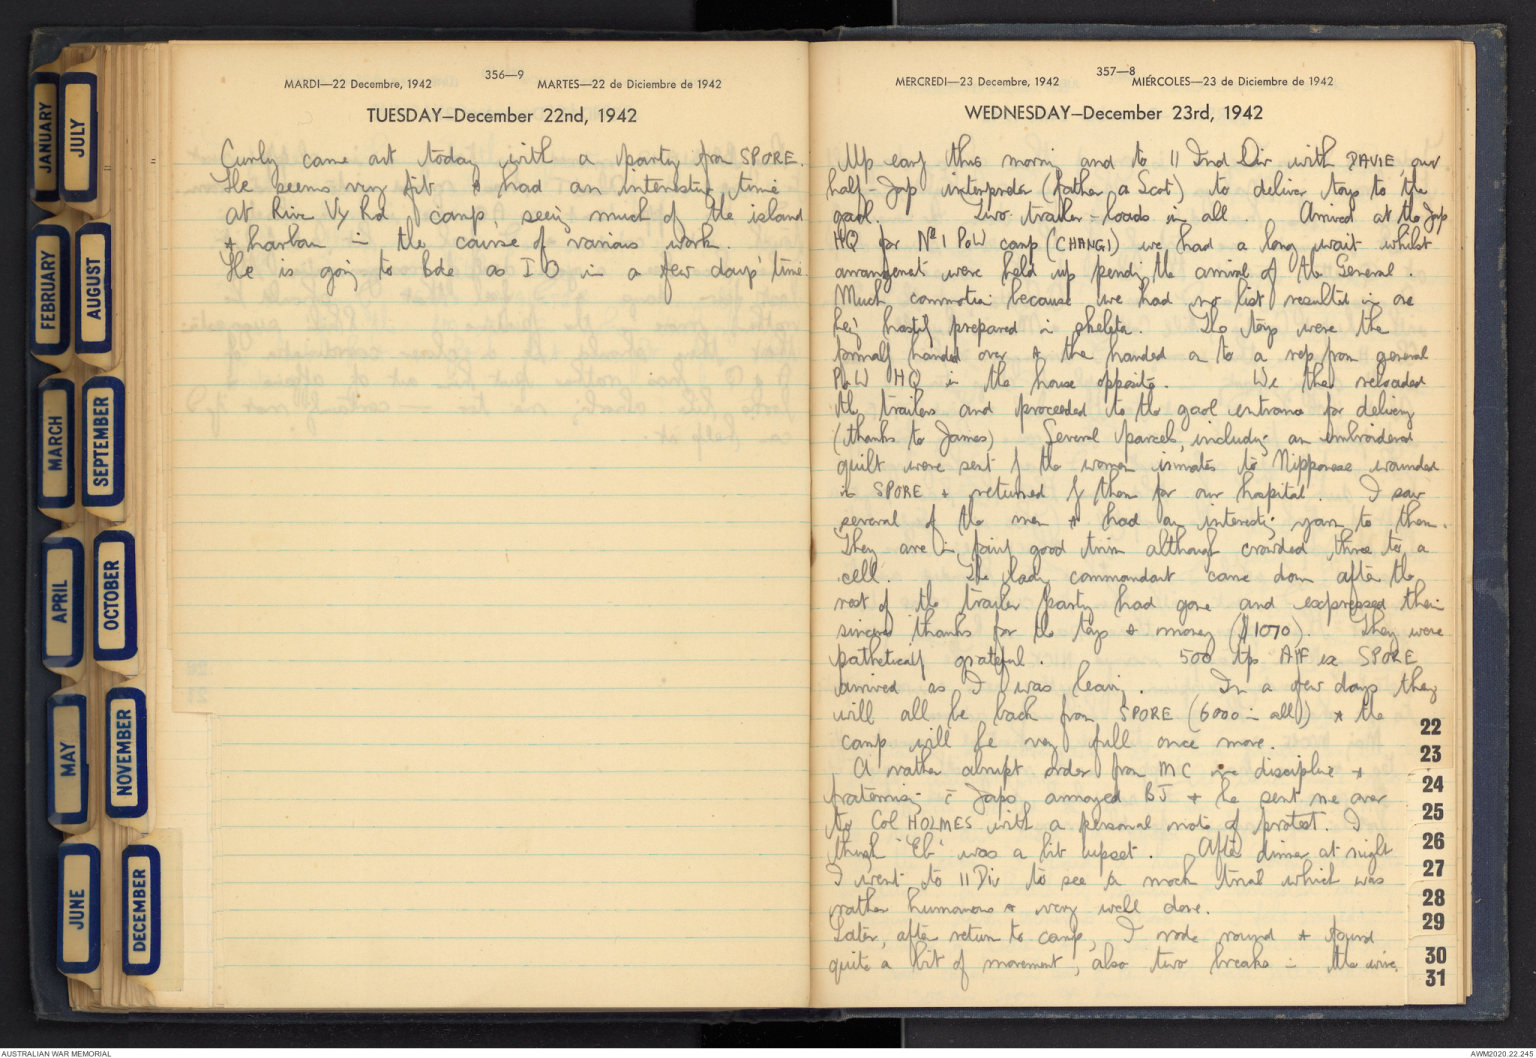 JANUARY
JULY
FEBRUARY
AUGUST
MARCH
SEPTEMBER
APRIL
OCTOBER
MAY
NOVEMBER
JUNE
DECEMBER
356—9
MARDI—22 Decembre, 1942 MARTES—22 de Diciembre de 1942
TUESDAY—December 22nd, 1942
Curly came out today with a party from SPORE.
He seems very fit & had an interesting time
at River Vy Rd camp seeing much of the island
& harbour in the course of various work.
He is going to Bde as IO in a few days' time
357—8
MERCREDI—23 Decembre, 1942 MIÉRCOLES—23 de Diciembre de 1942
WEDNESDAY—December 23rd, 1942
Up early this morning and to 11 Ind Div with DAVIE, our
half-Jap interpreter (father a Scot) to deliver toys to the
gaol. Two trailer-loads in all. Arrived at the Jap
HQ for No 1 PoW camp (CHANGI) we had a long wait whilst
arrangements were held up pending the arrival of the General.
Much commotion because we had no list resulted in one
being hastily prepared in skeleton. The toys were the
formally handed over & the handed on to a rep from general
PoW HQ in the house opposite. We then reloaded
the trailers and proceeded to the gaol entrance for delivery
(thanks to James) Several parcels, including an embroidered
quilt were sent by the women inmates to Nipponese wounded
in SPORE & returned by them for our hospital. I saw
several of the men & had an interesting yarn to them.
They are in fairly good trim although crowded three to a
cell. The lady commandant came down after the
rest of the trailer party had gone and expressed their
sincere thanks for the toys & money ($1070). They were
pathetically grateful. 500 tps AIF ex SPORE
arrived as I was leaving. In a few days they
will all be back from SPORE (6000 in all) & the
camp will be very full once more.
A rather abrupt order from MC re discipline &
fraternising c Japs annoyed BJ & he sent me over
to Col HOLMES with a personal note of protest. I
think 'Eb' was a bit upset. After dinner at night
I went to 11 Div to see a mock trial which was
rather humorous & very well done.
Later, after return to camp, I rode round & found
quite a bit of movement, also two breaks in the wire.
22
23
24
25
26
27
28
29
30
31
AUSTRALIAN WAR MEMORIAL
AWM2020.22.245